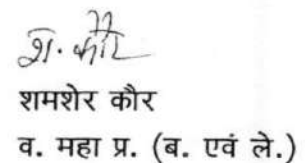 श. कौर
शमशेर कौर
व. महा प्र. (ब. एवं ले.)